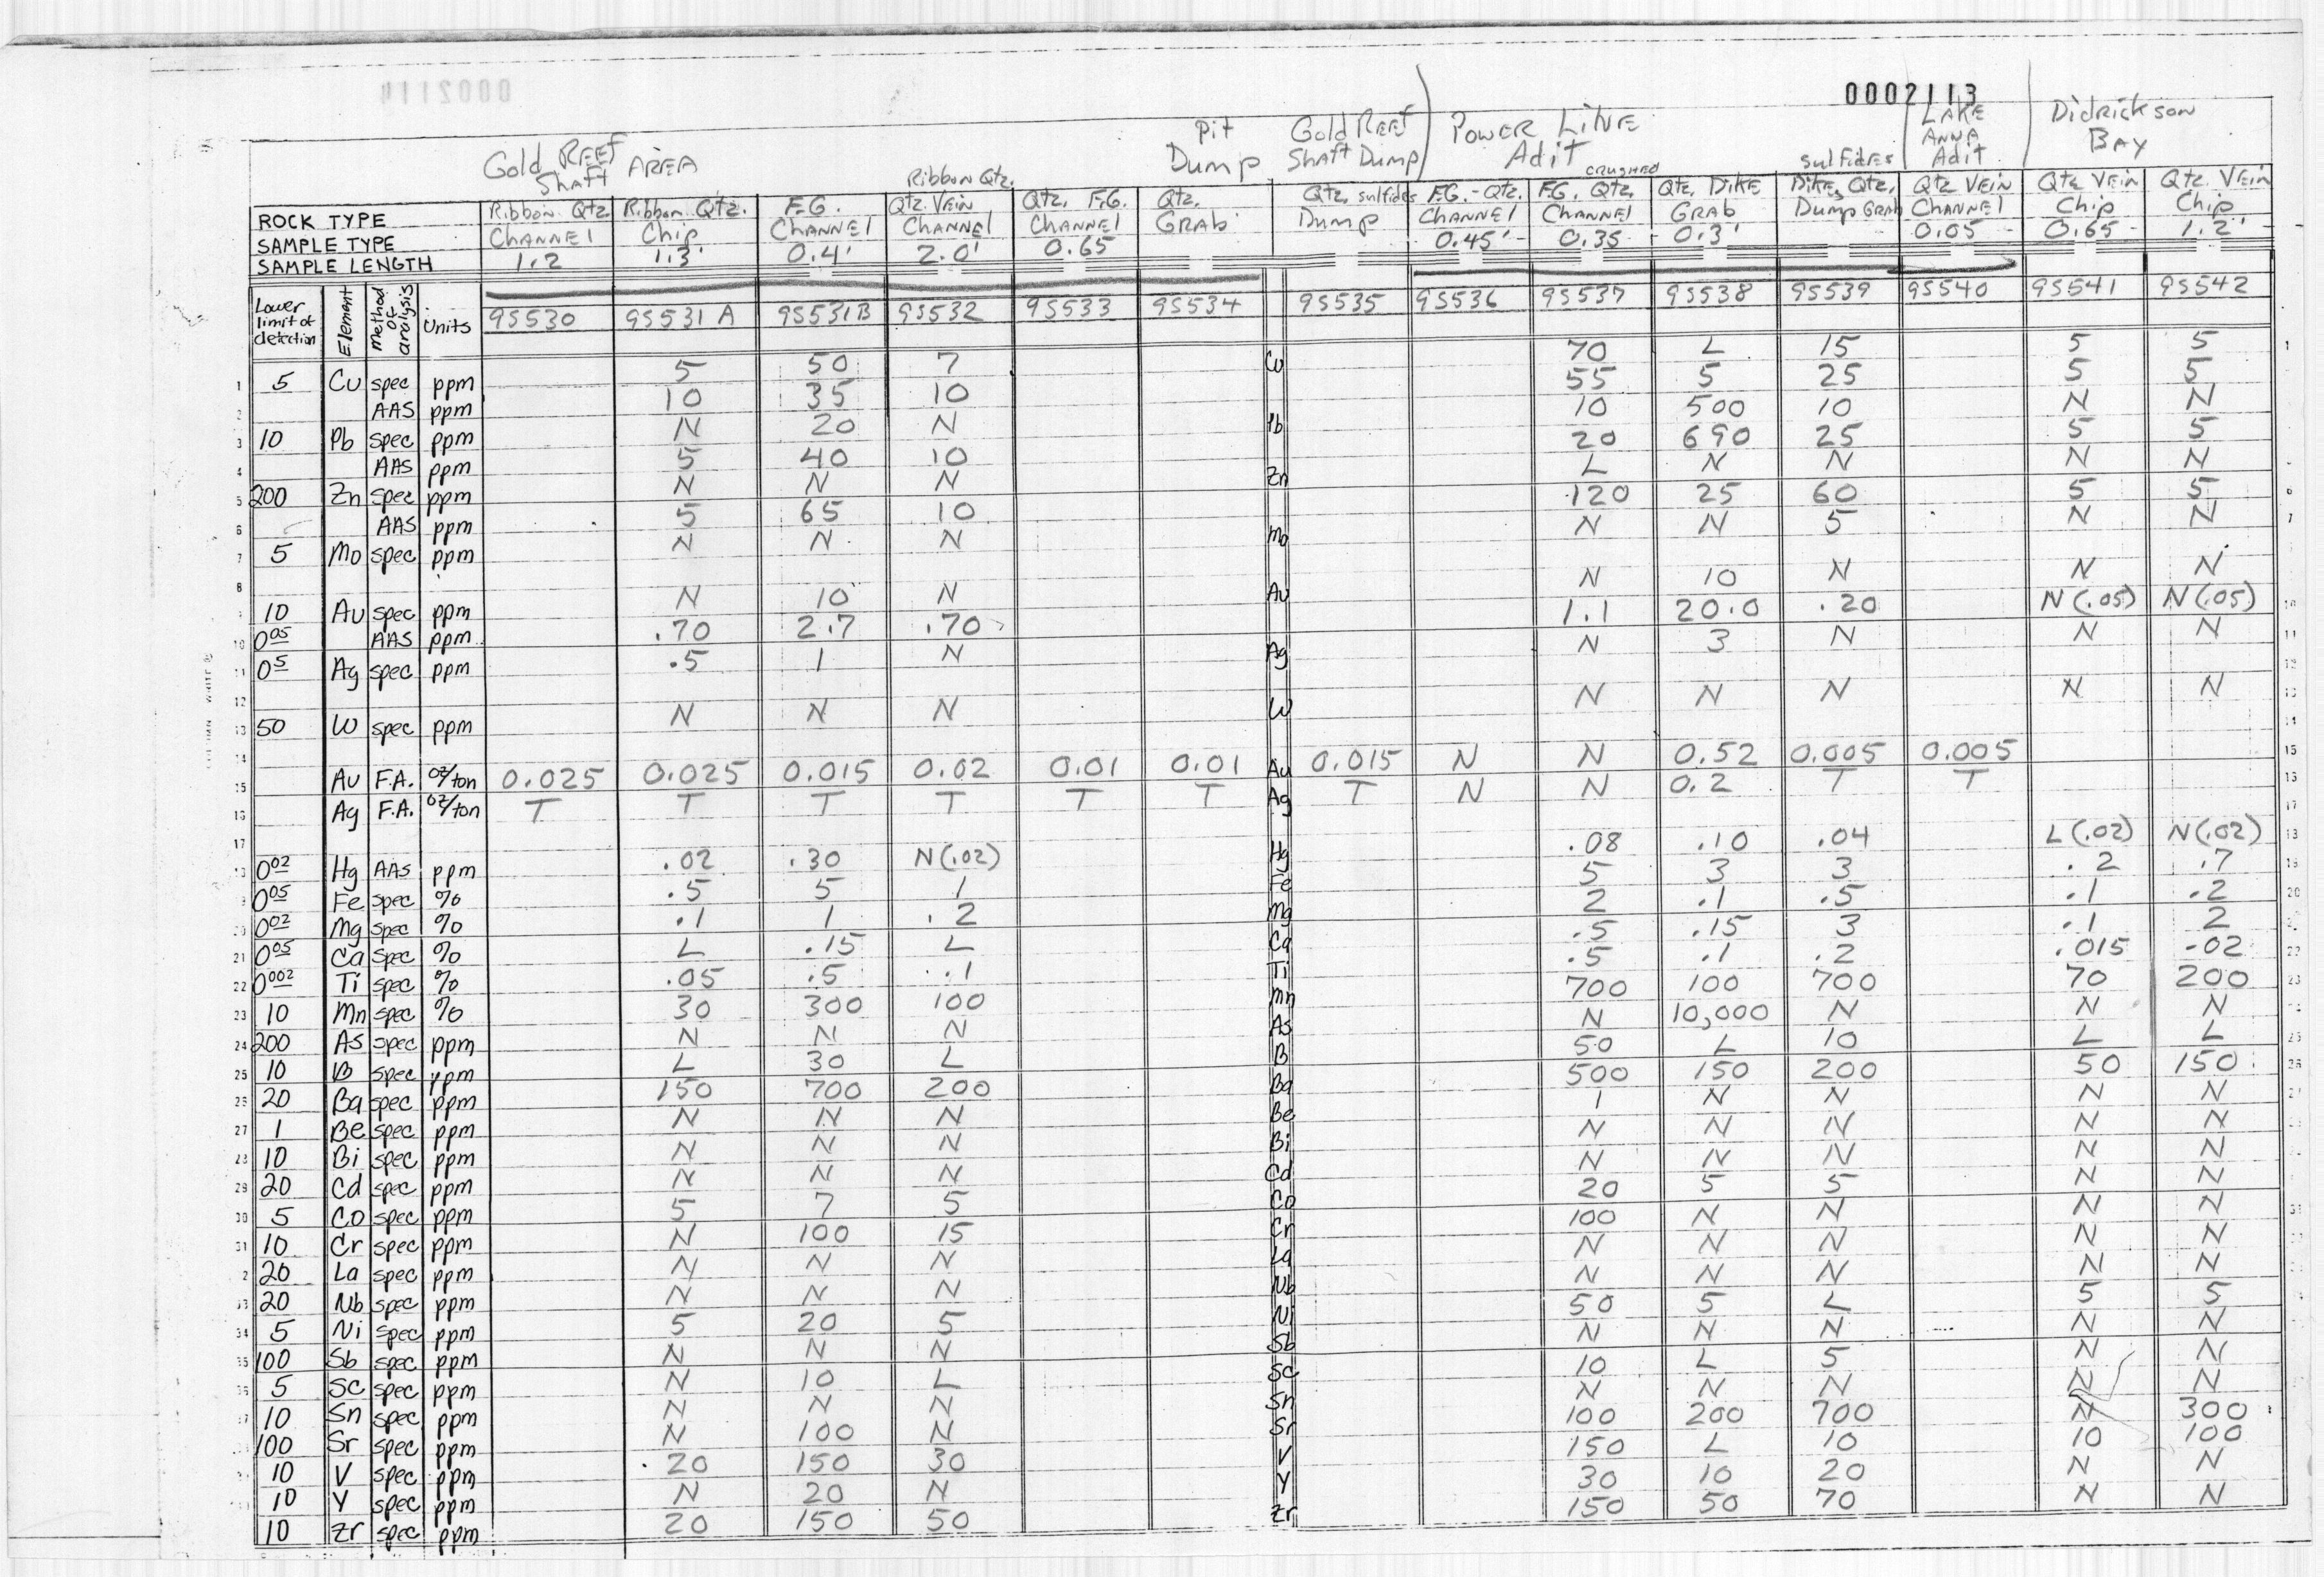 0002114
0002113
Gold Reef Shaft AREA
Pit Dump
Gold Reef Shaft Dump
Power Line Adit
LAKE ANNA Adit
Didrickson Bay
ROCK TYPE Ribbon Qtz Ribbon Qtz. F.G. Ribbon Qtz. Qtz Vein Qtz. F.G. Qtz. Qtz, sulfides F.G.-Qtz. CRUSHED F.G. Qtz, Qtz, Dike sulfides Dike, Qtz, Qtz Vein Qtz Vein Qtz. Vein
SAMPLE TYPE Channel Chip Channel Channel Channel Grab Dump Channel Channel Grab Dump Grab Channel Chip Chip
SAMPLE LENGTH 1.2 1.3' 0.4' 2.0' 0.65 0.45' 0.35 0.3' 0.05 0.65 1.2'
Lower limit of detection Element Method of analysis Units 9S530 9S531A 9S531B 9S532 9S533 9S534 9S535 9S536 9S537 9S538 9S539 9S540 9S541 9S542
1 5 Cu spec ppm 5 50 7 Cu 70 L 15 5 5 1
2 AAS ppm 10 35 10 55 5 25 5 5
3 10 Pb spec ppm N 20 N Pb 10 500 10 N N
4 AAS ppm 5 40 10 20 690 25 5 5
5 200 Zn spec ppm N N N Zn L N N N N
6 AAS ppm 5 65 10 120 25 60 5 5
7 5 Mo spec ppm N N N Mo N N 5 N N 7
8
9 10 Au spec ppm N 10 N Au N 10 N N N
10 0.05 AAS ppm .70 2.7 .70 1.1 20.0 .20 N(.05) N(.05) 10
11 0.5 Ag spec ppm .5 1 N Ag N 3 N N N 11
12 12
13 50 W spec ppm N N N W N N N N N 13
14 14
15 Au F.A. oz/ton 0.025 0.025 0.015 0.02 0.01 0.01 Au 0.015 N N 0.52 0.005 0.005 15
16 Ag F.A. oz/ton T T T T T T Ag T N N 0.2 T T 16
17 17
18 0.02 Hg AAS ppm .02 .30 N(.02) Hg .08 .10 .04 L(.02) N(.02) 18
0.05 Fe spec % .5 5 1 Fe 5 3 3 .2 .7 19
20 0.02 Mg spec % .1 1 .2 Mg 2 .1 .5 .1 .2 20
21 0.05 Ca spec % L .15 L Ca .5 .15 3 .1 2
22 0.002 Ti spec % .05 .5 .1 Ti .5 .1 .2 .015 .02 22
23 10 Mn spec % 30 300 100 Mn 700 100 700 70 200 23
24 200 As spec ppm N N N As N 10,000 N N N
25 10 B spec ppm L 30 L B 50 L 10 L L 25
26 20 Ba spec ppm 150 700 200 Ba 500 150 200 50 150 26
27 1 Be spec ppm N N N Be 1 N N N N
28 10 Bi spec ppm N N N Bi N N N N N
29 20 Cd spec ppm N N N Cd N N N N N
30 5 Co spec ppm 5 7 5 Co 20 5 5 N N
31 10 Cr spec ppm N 100 15 Cr 100 N N N N
20 La spec ppm N N N La N N N N N
33 20 Nb spec ppm N N N Nb N N N N N
34 5 Ni spec ppm 5 20 5 Ni 50 5 L 5 5
35 100 Sb spec ppm N N N Sb N N N N N
36 5 Sc spec ppm N 10 L Sc 10 L 5 N N
10 Sn spec ppm N N N Sn N N N N N
100 Sr spec ppm N 100 N Sr 100 200 700 N 300
10 V spec ppm 20 150 30 V 150 L 10 10 100
10 Y spec ppm N 20 N Y 30 10 20 N N
10 Zr spec ppm 20 150 50 Zr 150 50 70 N N